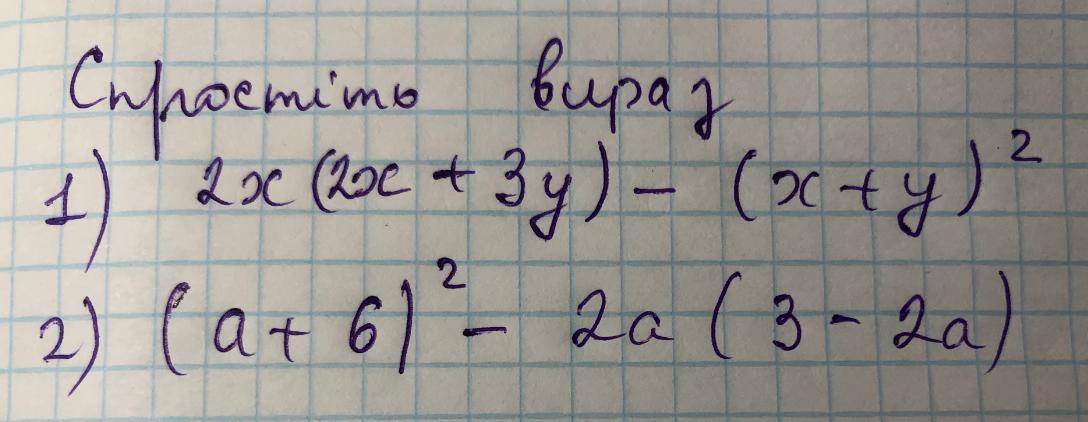 Спростіть вираз
1) 2x(2x + 3y) - (x + y)²
2) (a + 6)² - 2a (3 - 2a)